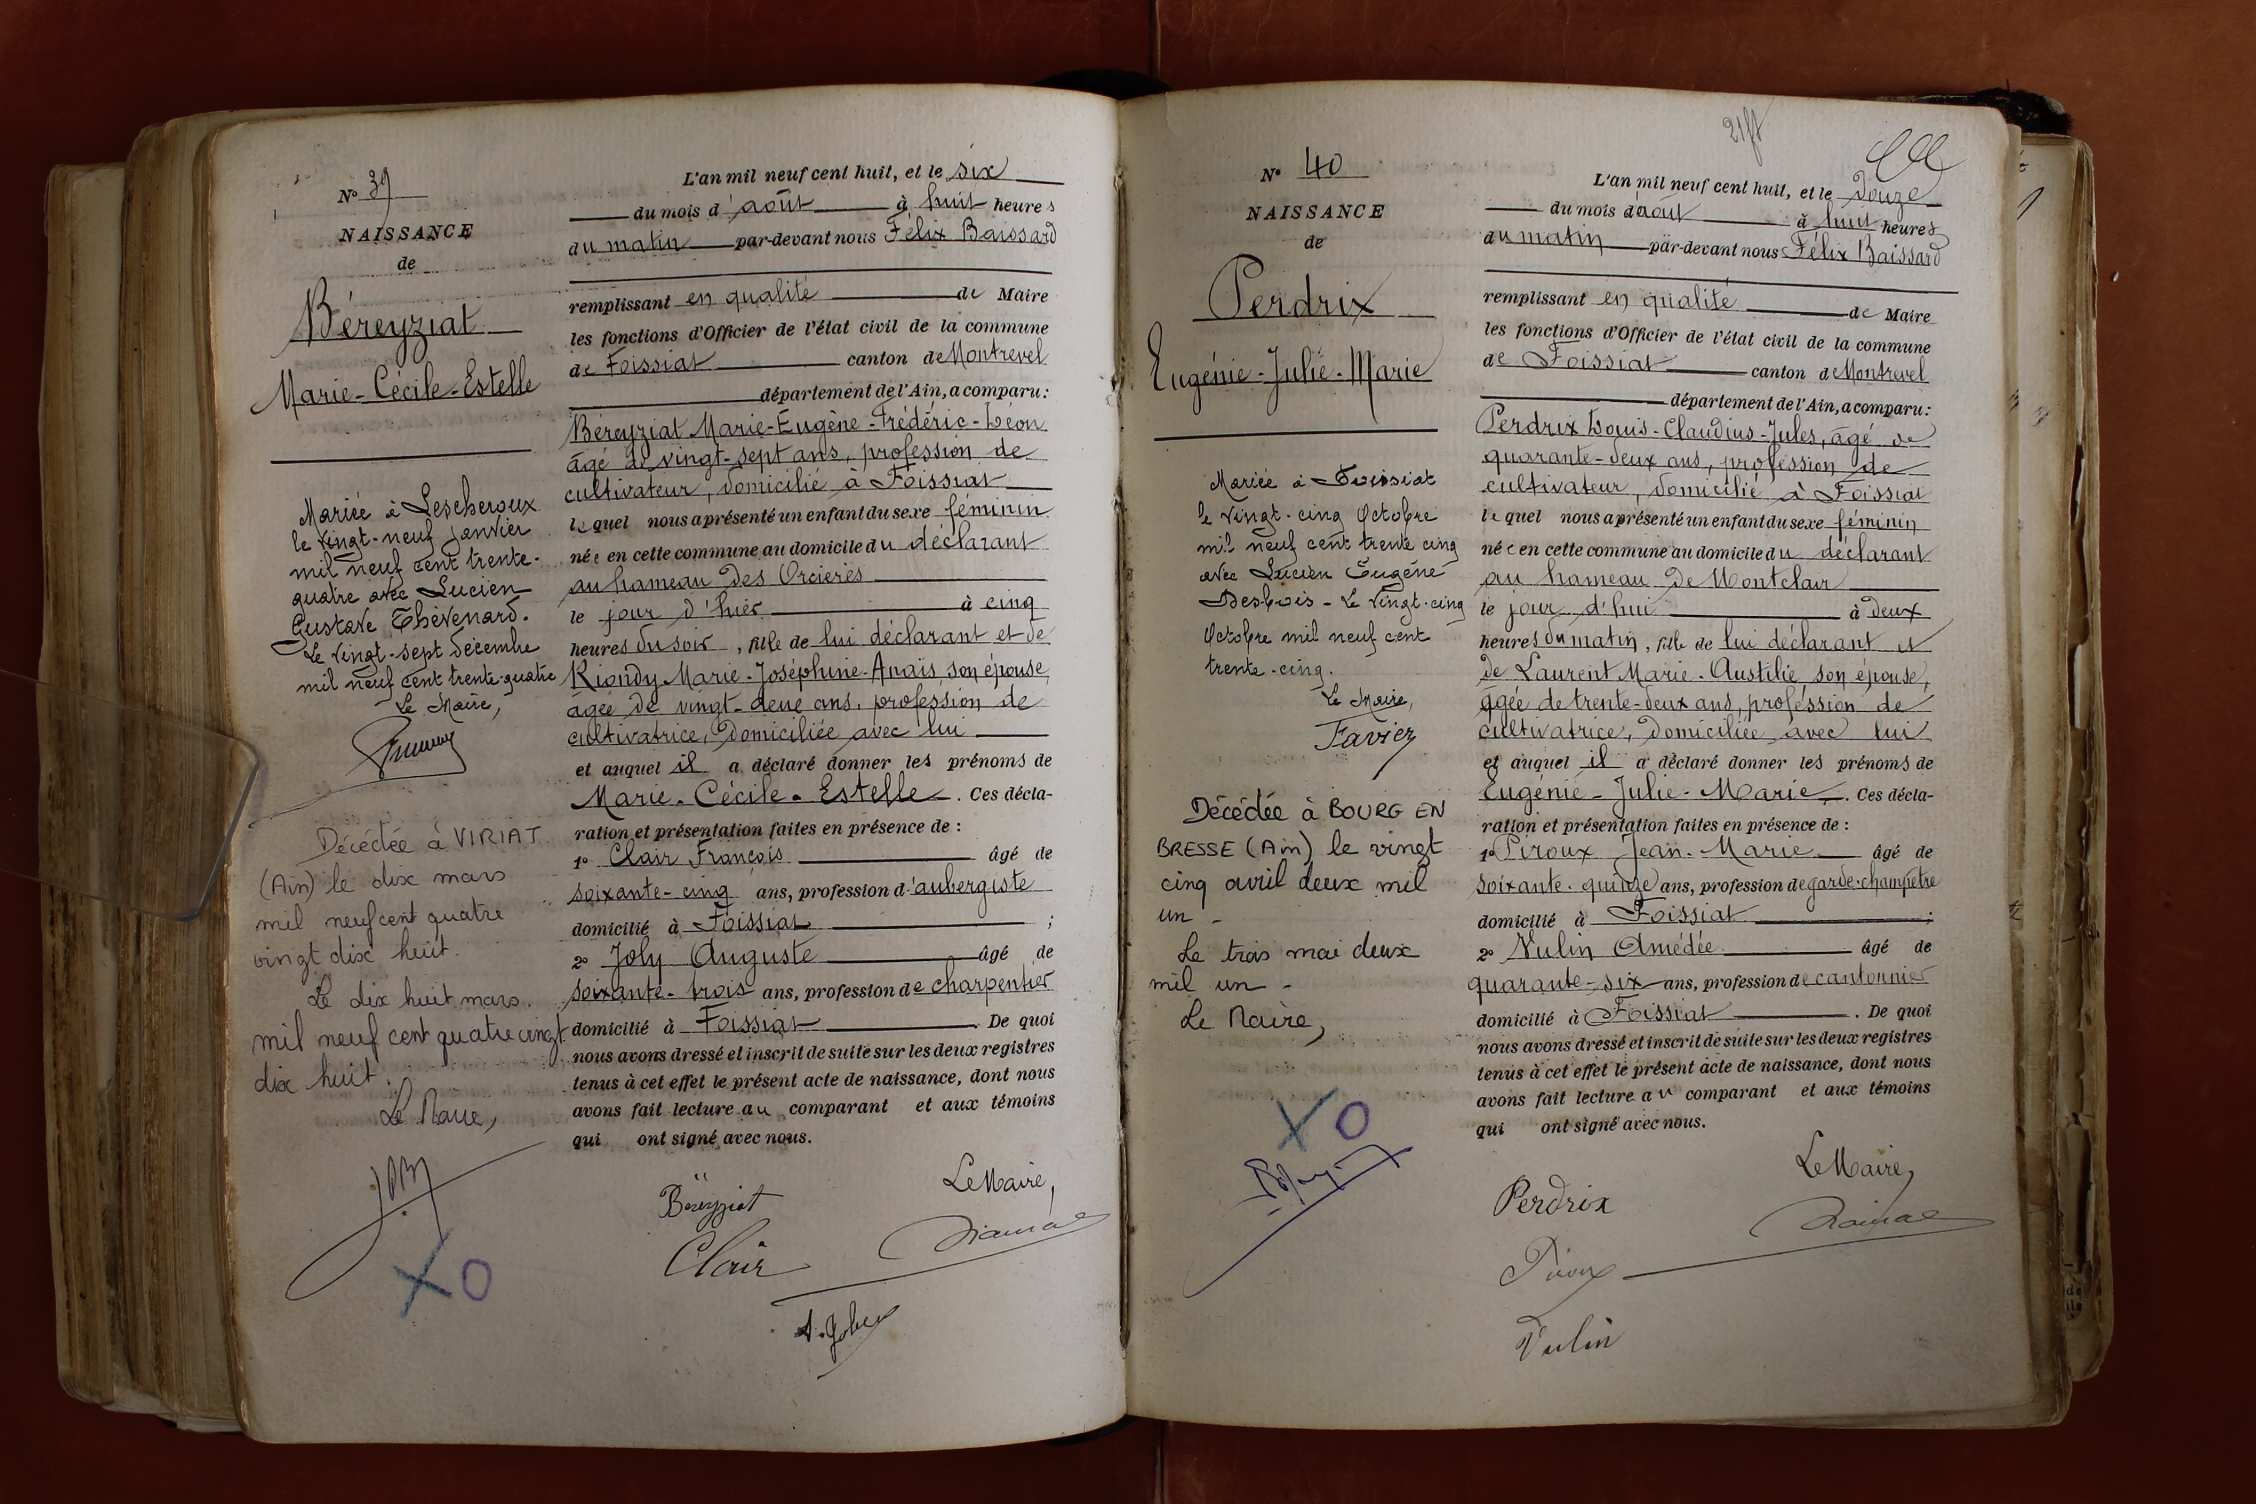 N° 39
NAISSANCE
de
Béreyziat
Marie-Cécile-Estelle
Mariée à Lescheroux
le vingt-neuf janvier
mil neuf cent trente-
quatre avec Lucien
Gustave Thévenard.
Le vingt-sept décembre
mil neuf cent trente-quatre
Le Maire,
Décédée à VIRIAT
(Ain) le dix mars
mil neuf cent quatre
vingt dix huit.
Le dix huit mars
mil neuf cent quatre vingt
dix huit.
Le Maire,
XO
L'an mil neuf cent huit, et le six
du mois d'août à huit heures
du matin par-devant nous Félix Baissard
remplissant en qualité de Maire
les fonctions d'Officier de l'état civil de la commune
de Foissiat canton de Montrevel
département de l'Ain, a comparu:
Béreyziat Marie-Eugène-Frédéric-Léon
âgé de vingt-sept ans, profession de
cultivateur, domicilié à Foissiat
lequel nous a présenté un enfant du sexe féminin
née en cette commune au domicile du déclarant
au hameau des Orcières
le jour d'hier à cinq
heures du soir, fille de lui déclarant et de
Riondy Marie-Joséphine-Anaïs, son épouse,
âgée de vingt-deux ans, profession de
cultivatrice, domiciliée avec lui
et auquel il a déclaré donner les prénoms de
Marie-Cécile-Estelle. Ces décla-
ration et présentation faites en présence de :
1° Clair François âgé de
soixante-cinq ans, profession d'aubergiste
domicilié à Foissiat ;
2° Joly Auguste âgé de
soixante-trois ans, profession de charpentier
domicilié à Foissiat. De quoi
nous avons dressé et inscrit de suite sur les deux registres
tenus à cet effet le présent acte de naissance, dont nous
avons fait lecture au comparant et aux témoins
qui ont signé avec nous.
Le Maire,
Béreyziat
Clair
A. Joly
21 ft
N° 40
NAISSANCE
de
Perdrix
Eugénie-Julie-Marie
Mariée à Foissiat
le vingt-cinq Octobre
mil neuf cent trente cinq
avec Lucien Eugène
Desbois - Le vingt-cinq
Octobre mil neuf cent
trente-cinq.
Le Maire,
Favier
Décédée à BOURG EN
BRESSE (Ain) le vingt
cinq avril deux mil
un -
Le trois mai deux
mil un -
Le Maire,
XO
L'an mil neuf cent huit, et le douze
du mois d'août à huit heures
du matin par-devant nous Félix Baissard
remplissant en qualité de Maire
les fonctions d'Officier de l'état civil de la commune
de Foissiat canton de Montrevel
département de l'Ain, a comparu:
Perdrix Louis-Claudius-Jules, âgé de
quarante-deux ans, profession de
cultivateur, domicilié à Foissiat
lequel nous a présenté un enfant du sexe féminin
née en cette commune au domicile du déclarant
au hameau de Montclair
le jour d'hui à deux
heures du matin, fille de lui déclarant et
de Laurent Marie-Austilie son épouse,
âgée de trente-deux ans, profession de
cultivatrice, domiciliée avec lui
et auquel il a déclaré donner les prénoms de
Eugénie-Julie-Marie. Ces décla-
ration et présentation faites en présence de :
1° Piroux Jean-Marie âgé de
soixante-quinze ans, profession de garde-champêtre
domicilié à Foissiat ;
2° Vulin Amédée âgé de
quarante-six ans, profession de cantonnier
domicilié à Foissiat. De quoi
nous avons dressé et inscrit de suite sur les deux registres
tenus à cet effet le présent acte de naissance, dont nous
avons fait lecture au comparant et aux témoins
qui ont signé avec nous.
Le Maire,
Perdrix
Piroux
Vulin